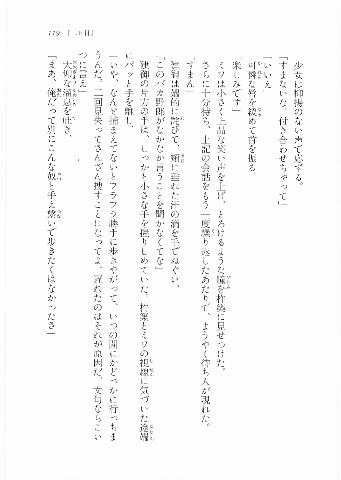 119 【十日】
少女は抑揚のない声で応ずる。
「すまないな、付き合わせちゃって」
「いいえ」
可憐な唇を綻めて首を振る。
「楽しみです」
ミワは小さく上品な笑い声を上げ、とろけるような瞳を柊築に見せつけた。
さらに十分待ち、上記の会話をもう一度繰り返したあたりで、ようやく待ち人が現れた。
「すまん」
建御は端的に詫びて、頬に垂れた汗の滴を手でぬぐい、
「このバカ野郎がなかなか言うことを聞かなくてな」
建御の片方の手は、しっかと小さな手を握りしめていた。柊築とミワの視線に気づいた途端
にパッと手を離し、
「いや、なんせ捕まえてないとフラフラ勝手に歩きやがって、いつの間にかどっかに行っちま
うんだ。二回見失ってさんざん捜すことになってよ、遅れたのはそれが原因だ。文句ならこい
つに言え」
大仰な溜息を吐き、
「まあ、俺だって別にこんな奴と手え繋いで歩きたくはなかったさ」